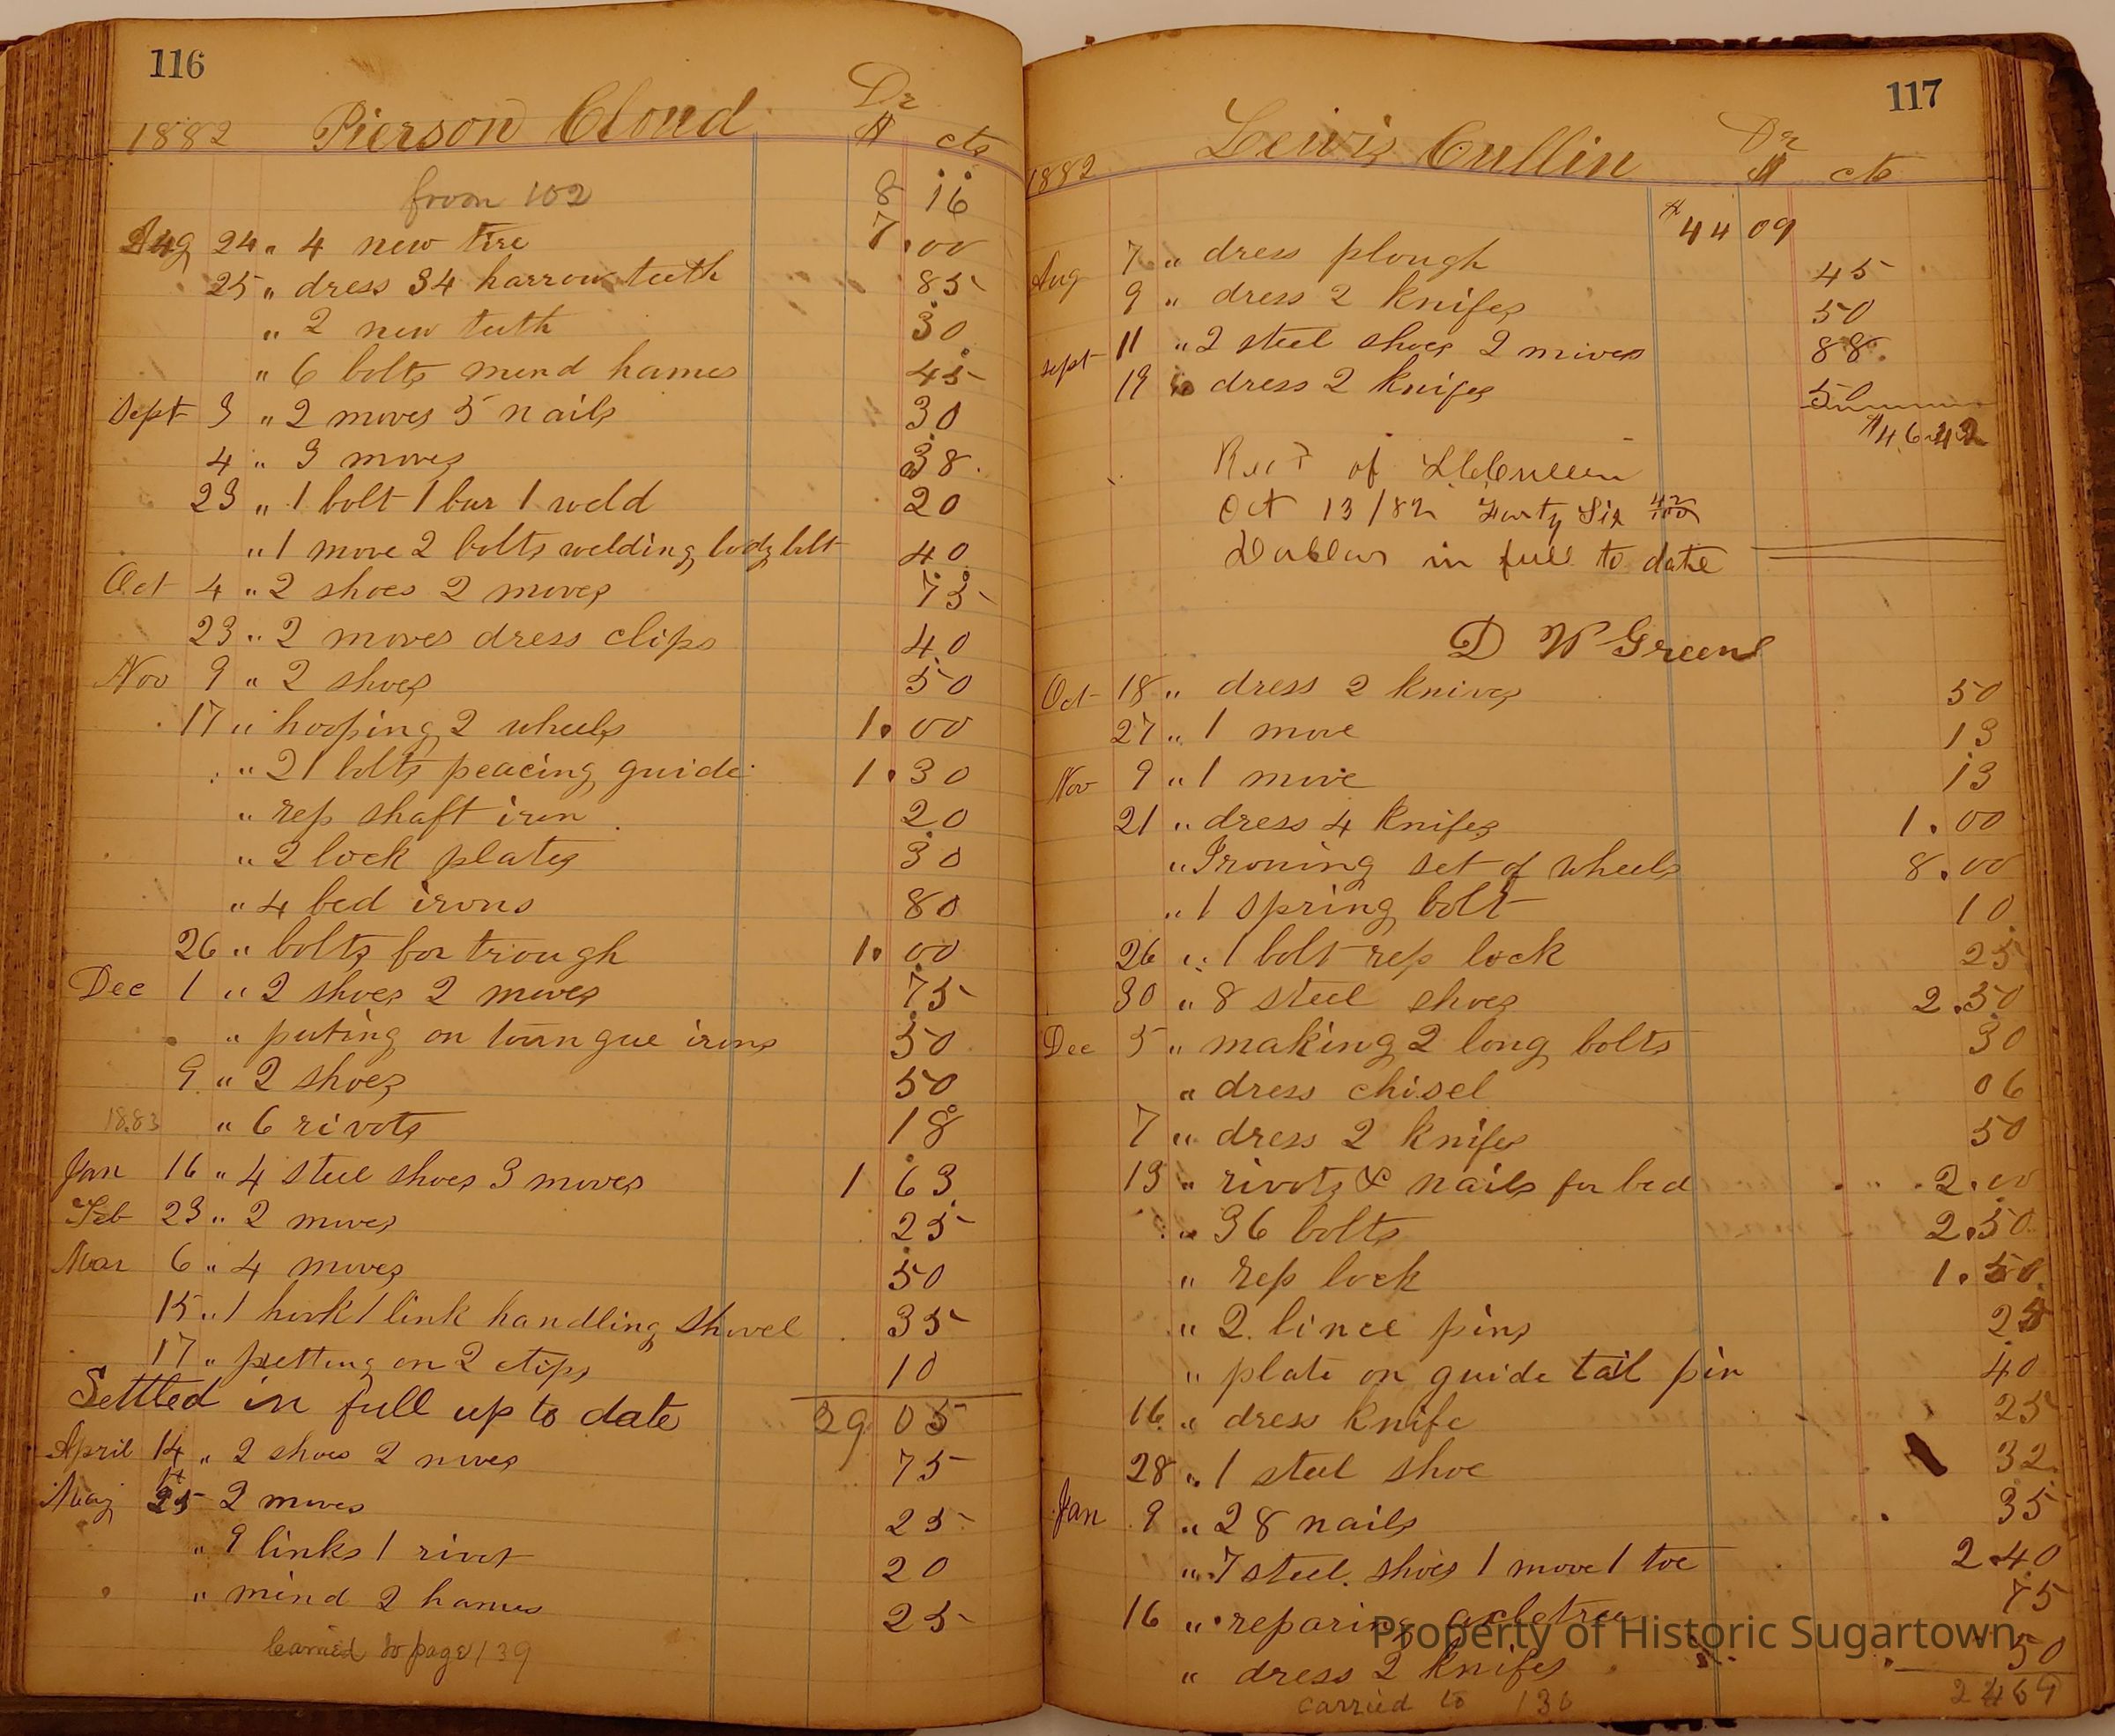 116
Dr
1882 Pierson Cloud $ cts
from 102 8 16
Aug 24 " 4 new tire 7.00
25 " dress 34 harrow teeth 85
" 2 new teeth 30
" 6 bolts mend hames 45
Sept 3 " 2 moves 5 nails 30
4 " 3 moves 38
23 " 1 bolt 1 bur 1 weld 20
" 1 move 2 bolts welding body bolt 40
Oct 4 " 2 shoes 2 moves 75
23 " 2 moves dress clips 40
Nov 9 " 2 shoes 50
17 " hooping 2 wheels 1.00
" 21 bolts peacing guide 1.30
" rep shaft iron 20
" 2 lock plates 30
" 4 bed irons 80
26 " bolts for trough 1.00
Dec 1 " 2 shoes 2 moves 75
" puting on toungue irons 50
9 " 2 shoes 50
1883 " 6 rivots 18
Jan 16 " 4 steel shoes 3 moves 1 63
Feb 23 " 2 moves 25
Mar 6 " 4 moves 50
15 " 1 hook 1 link handling shovel 35
17 " putting on 2 clips 10
Settled in full up to date 29 05
April 14 " 2 shoes 2 moves 75
May 25 2 moves 25
" 9 links 1 rivot 20
" mind 2 hames 25
Carried to page 139
117
Lewis Cullin Dr
1882 $ cts
$44 09
Aug 7 " dress plough 45
9 " dress 2 knifes 50
Sept 11 " 2 steel shoes 2 moves 88
19 " dress 2 knifes 50
$46.42
Rec'd of L Cullen
Oct 13/82 Forty Six 42/100
Dollars in full to date
D W Green
Oct 18 " dress 2 knives 50
27 " 1 move 13
Nov 9 " 1 move 13
21 " dress 4 knifes 1.00
" Ironing set of wheels 8.00
" 1 spring bolt 10
26 " 1 bolt rep lock 25
30 " 8 steel shoes 2.50
Dec 5 " making 2 long bolts 30
" dress chisel 06
7 " dress 2 knifes 50
13 " rivots & nails for bed 2.00
" 36 bolts 2.50
" rep lock 1.50
" 2 lince pins 25
" plate on guide tail pin 40
16 " dress knife 25
28 " 1 steel shoe 32
Jan 9 " 28 nails 35
" 7 steel shoes 1 move 1 toe 2.40
16 " reparing axletree 75
" dress 2 knifes 50
carried to 130 2469
Property of Historic Sugartown